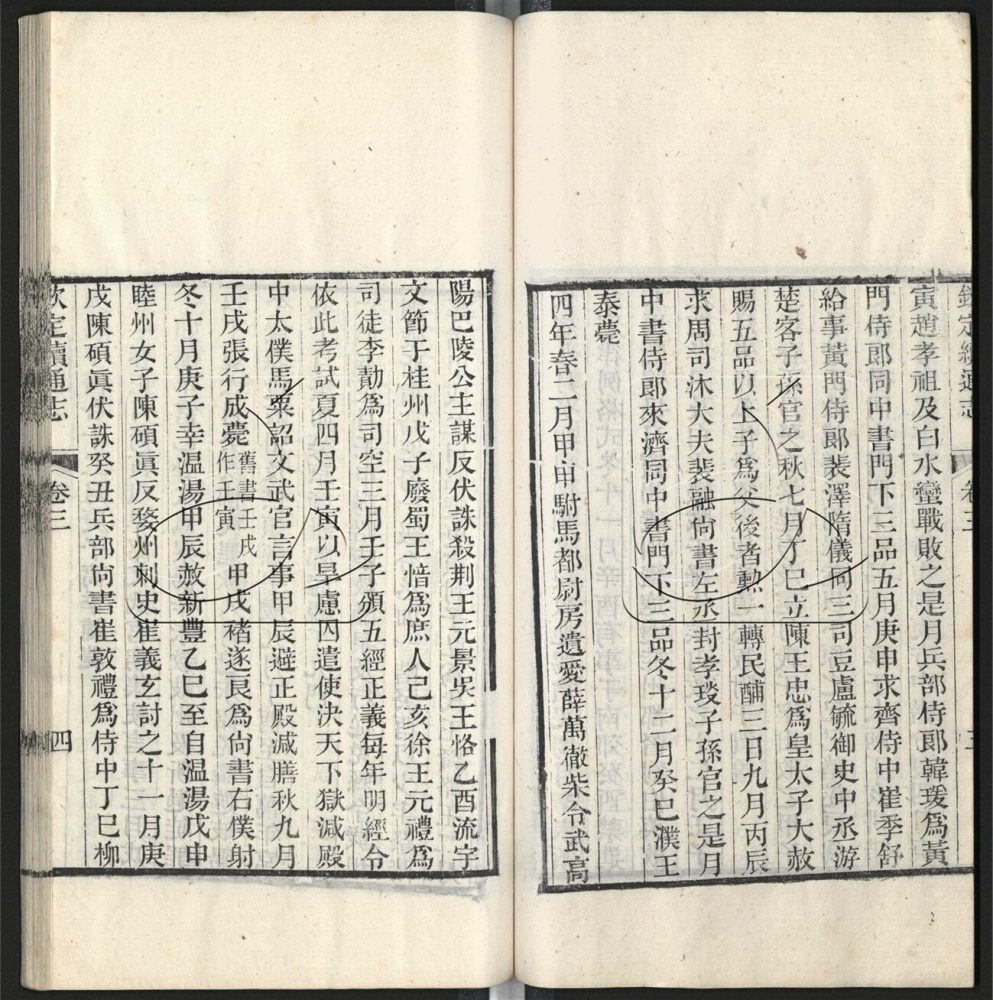 欽定續通志 卷三 三
寅趙孝祖及白水蠻戰敗之是月兵部侍郎韓瑗爲黃
門侍郎同中書門下三品五月庚申求齊侍中崔季舒
給事黃門侍郎裴澤隋儀同三司豆盧毓御史中丞游
楚客子孫官之秋七月丁巳立陳王忠爲皇太子大赦
賜五品以上子爲父後者勲一轉民酺三日九月丙辰
求周司沐大夫裴融尙書左丞封孝琰子孫官之是月
中書侍郎來濟同中書門下三品冬十二月癸巳濮王
泰薨
四年春二月甲申駙馬都尉房遺愛薛萬徹柴令武高
陽巴陵公主謀反伏誅殺荆王元景吳王恪乙酉流宇
文節于桂州戊子廢蜀王愔爲庶人己亥徐王元禮爲
司徒李勣爲司空三月壬子頒五經正義每年明經令
依此考試夏四月壬寅以旱慮囚遣使決天下獄減殿
中太僕馬粟詔文武官言事甲辰避正殿減膳秋九月
壬戌張行成薨舊書壬戌作壬寅甲戌褚遂良爲尙書右僕射
冬十月庚子幸温湯甲辰赦新豐乙巳至自温湯戊申
睦州女子陳碩眞反婺州刺史崔義玄討之十一月庚
戌陳碩眞伏誅癸丑兵部尙書崔敦禮爲侍中丁巳柳
欽定續通志 卷三 四